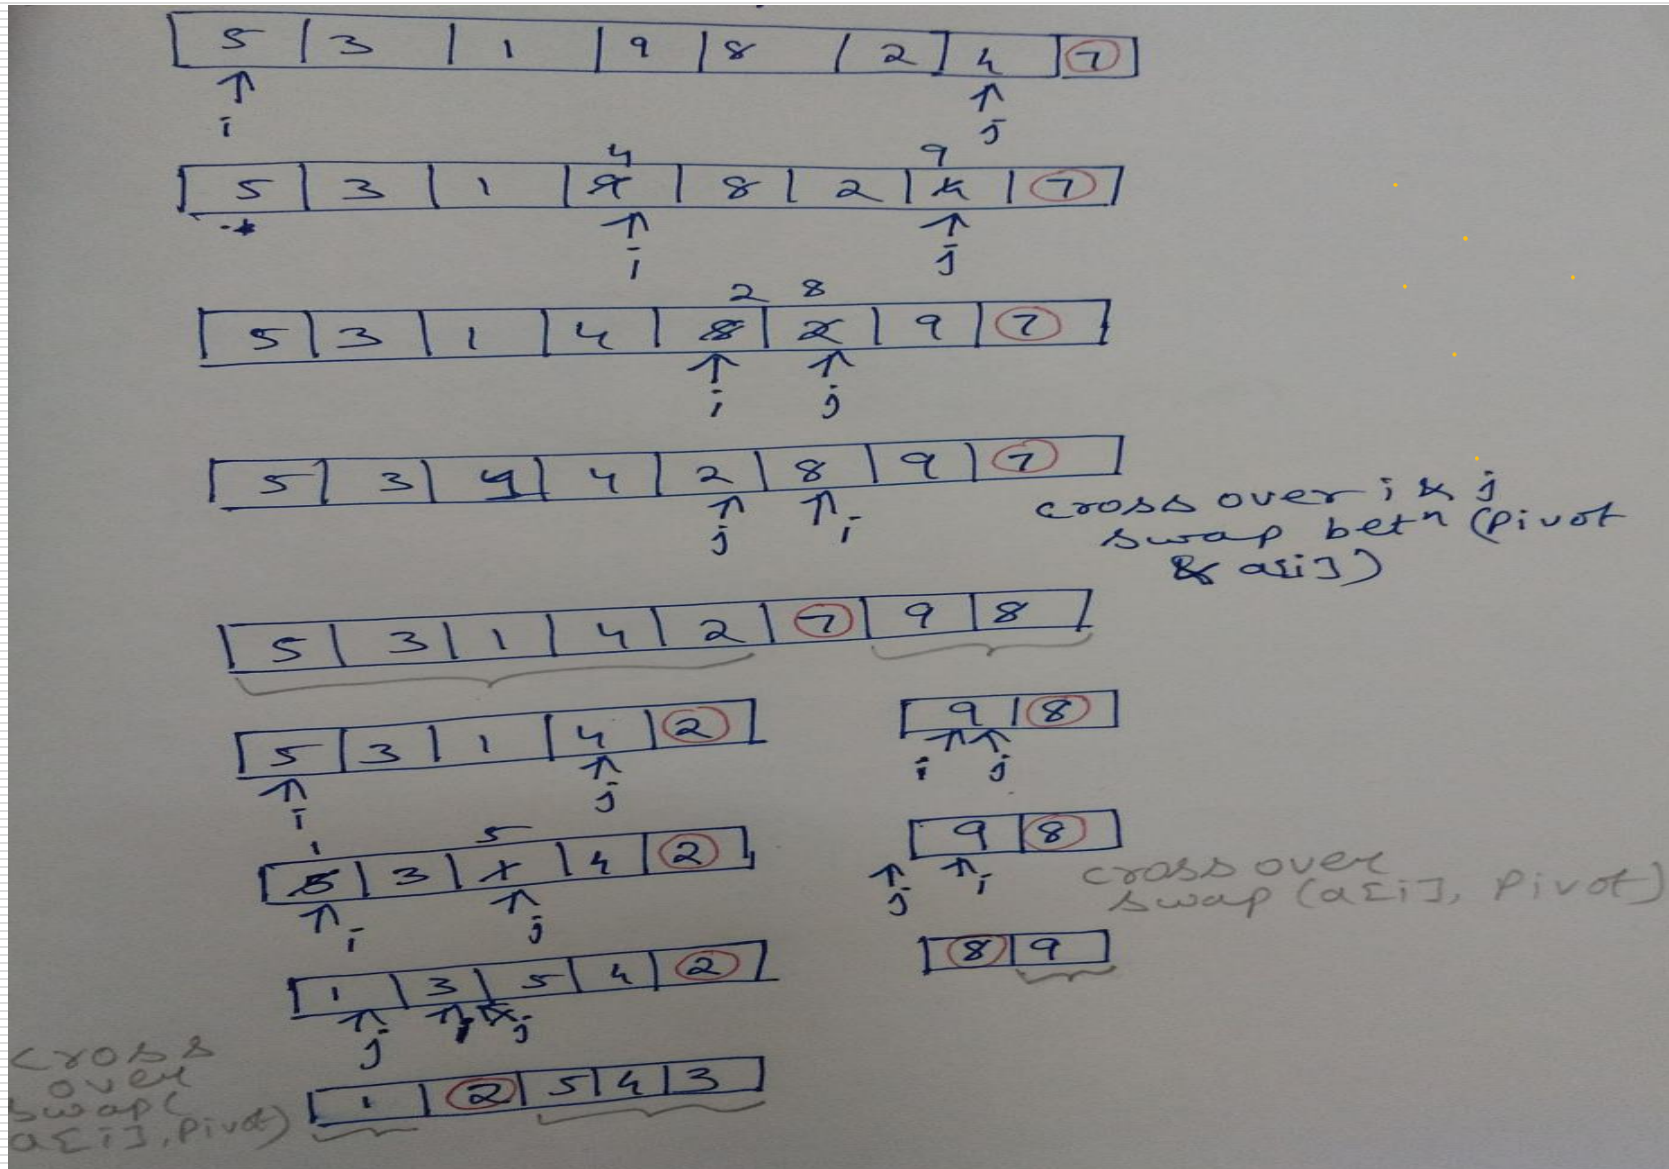 5 3 1 9 8 2 4 7
i j
4 9
5 3 1 9 8 2 4 7
i j
2 8
5 3 1 4 8 2 9 7
i j
5 3 1 4 2 8 9 7
j i
cross over i & j
swap betⁿ (pivot
& a[i])
5 3 1 4 2 7 9 8
5 3 1 4 2
i j
9 8
i j
1 5
5 3 1 4 2
i j
9 8
j i
cross over
swap (a[i], pivot)
1 3 5 4 2
j i j
8 9
cross
over
swap(
a[i], pivot)
1 2 5 4 3